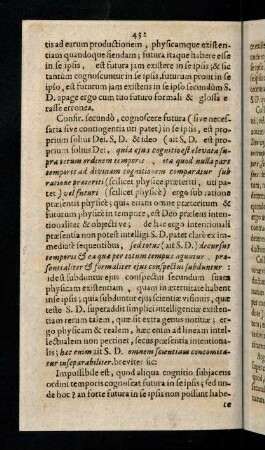 432
tis ad earum productionem, physicamque existen-
tiam quandoque siendam; futura itaque habere esse in
in se ipsis, est futura jam existere in se ipsis; & sic
tantùm cognoscuntur in se ipsis futurum prout in se
ipso, est futurum jam existens in se ipso secundùm S.
D. apage ergo cum tuo futuro formali & glossa è
rasse erronea.
Confir. secundò, cognoscere futura (sive neces-
saria sive contingentia uti patet) in se ipsis, est pro-
prium solius Dei, S. D. & ideo (ait S. D. est pro-
prium solius Dei, quia ejus cognitio est elevata su-
pra totum ordinem temporis, ita quod nulla pars
temporis ad divinam cognitionem comparatur sub
ratione præteriti (scilicet physicè præteriti, uti pa-
tet) vel futuri (scilicet physicè) ergo sub ratione
præsentis physicè; quia etiam omne præteritum &
futurum physicè in tempore, est Deo præsens inten-
tionaliter & objectivè; de hac ergo intentionali
præsentia non potest intelligi S. D. patet clarè ex im-
mediatè sequentibus, sed totus (ait S. D.) decursus
temporis & ea quæ per totum tempus aguntur, præ-
sentialiter & formaliter ejus conspectui subduntur:
id est subduntur ejus conspectui secundùm suam
physicam existentiam, quam in æternitate habent
in se ipsis; quia subduntur ejus scientiæ visionis, quæ
teste S. D. superaddit simplici intelligentiæ existen-
tiam rerum talem, quæ sit extra genus notitiæ; er-
go physicam & realem, hæc enim ad lineam intel-
lectualem non spectat, benè autem intentiona-
lis; hæc enim ait S. D. omnem scientiam concomita-
tur inseparabiliter. breviter sic:
Impossibile est, quod aliqua cognitio subjacens
ordini temporis cognoscat futura in se ipsis; sed un-
de hoc? an fortè futura in se ipsis non possunt habe-
re